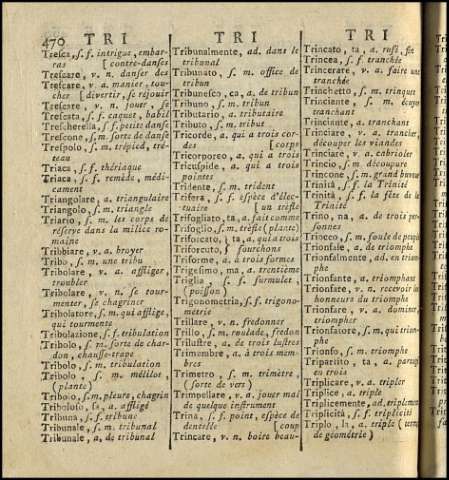 470 TRI TRI TRI
Tresca, s. f. intrigue, embar-
ras [contre-danses
Trescare, v. n. danser des
Trescare, v. a. manier, tou-
cher [divertir, se réjouir
Trescare, v. n. jouer, se
Trescata, s. f. caquet, babil
Trescherella, s. f. petite danse
Trescone, s. m. sorte de danse
Trespolo, s. m. trépied, tré-
teau
Triaca, s. f. thériaque
Triaca, s. f. remède, médi-
cament
Triangolare, a. triangulaire
Triangolo, s. m. triangle
Triario, s. m. les corps de
réserve dans la milice ro-
maine
Tribbiare, v. a. broyer
Tribo, s. m. une tribu
Tribolare, v. a. affliger,
troubler
Tribolare, v. n. se tour-
menter, se chagriner
Tribolatore, s. m. qui afflige,
qui tourmente
Tribolazione, s. f. tribulation
Tribolo, s. m. sorte de char-
don, chausse-trape
Tribolo, s. m. tribulation
Tribolo, s. m. mélilot,
(plante)
Tribolo, s. m. pleurs, chagrin
Triboloso, sa, a. affligé
Tribuna, s. f. tribune
Tribunale, s. m. tribunal
Tribunale, a. de tribunal
Tribunalmente, ad. dans le
tribunal
Tribunato, s. m. office de
tribun
Tribunesco, ca, a. de tribun
Tribuno, s. m. tribun
Tributario, a. tributaire
Tributo, s. m. tribut
Tricorde, a. qui a trois cor-
des [corps
Tricorporeo, a. qui a trois
Tricuspide, a. qui a trois
pointes
Tridente, s. m. trident
Trifera, s. f. espèce d'élec-
tuaire [un trèfle
Trifogliato, ta, a. fait comme
Trifoglio, s. m. trèfle (plante)
Triforcato, ta, a. qui a trois
Triforcuto, fourchons
Triforme, a. à trois formes
Trigesimo, ma, a. trentième
Triglia, s. f. surmulet,
(poisson)
Trigonometria, s. f. trigono-
métrie
Trillare, v. n. fredonner
Trillo, s. m. roulade, fredon
Trilustre, a. de trois lustres
Trimembre, a. à trois mem-
bres
Trimetro, s. m. trimètre,
(sorte de vers)
Trimpellare, v. a. jouer mal
de quelque instrument
Trina, s. f. point, espèce de
dentelle [coup
Trincare, v. n. boire beau-
Trincato, ta, a. rusé, fin
Trincea, s. f. tranchée
Trincerare, v. a. faire une
tranchée
Trinchetto, s. m. trinquet
Trinciante, s. m. écuyer
tranchant
Trinciante, a. tranchant
Trinciare, v. a. trancher,
découper les viandes
Trinciare, v. a. cabrioler
Trincio, s. m. découpure
Trincone, s. m. grand buveur
Trinità, s. f. la Trinité
Trinità, s. f. la fête de la
Trinité
Trino, na, a. de trois per-
sonnes
Triocco, s. m. foule de peuple
Trionfale, a. de triomphe
Trionfalmente, ad. en triom-
phe
Trionfante, a. triomphant
Trionfare, v. n. recevoir les
honneurs du triomphe
Trionfare, v. a. dominer,
triompher
Trionfatore, s. m. qui triom-
phe
Trionfo, s. m. triomphe
Tripartito, ta, a. partagé
en trois
Triplicare, v. a. tripler
Triplice, a. triple
Triplicemente, ad. triplement
Triplicità, s. f. triplicité
Triplo, la, a. triple (terme
de géométrie)